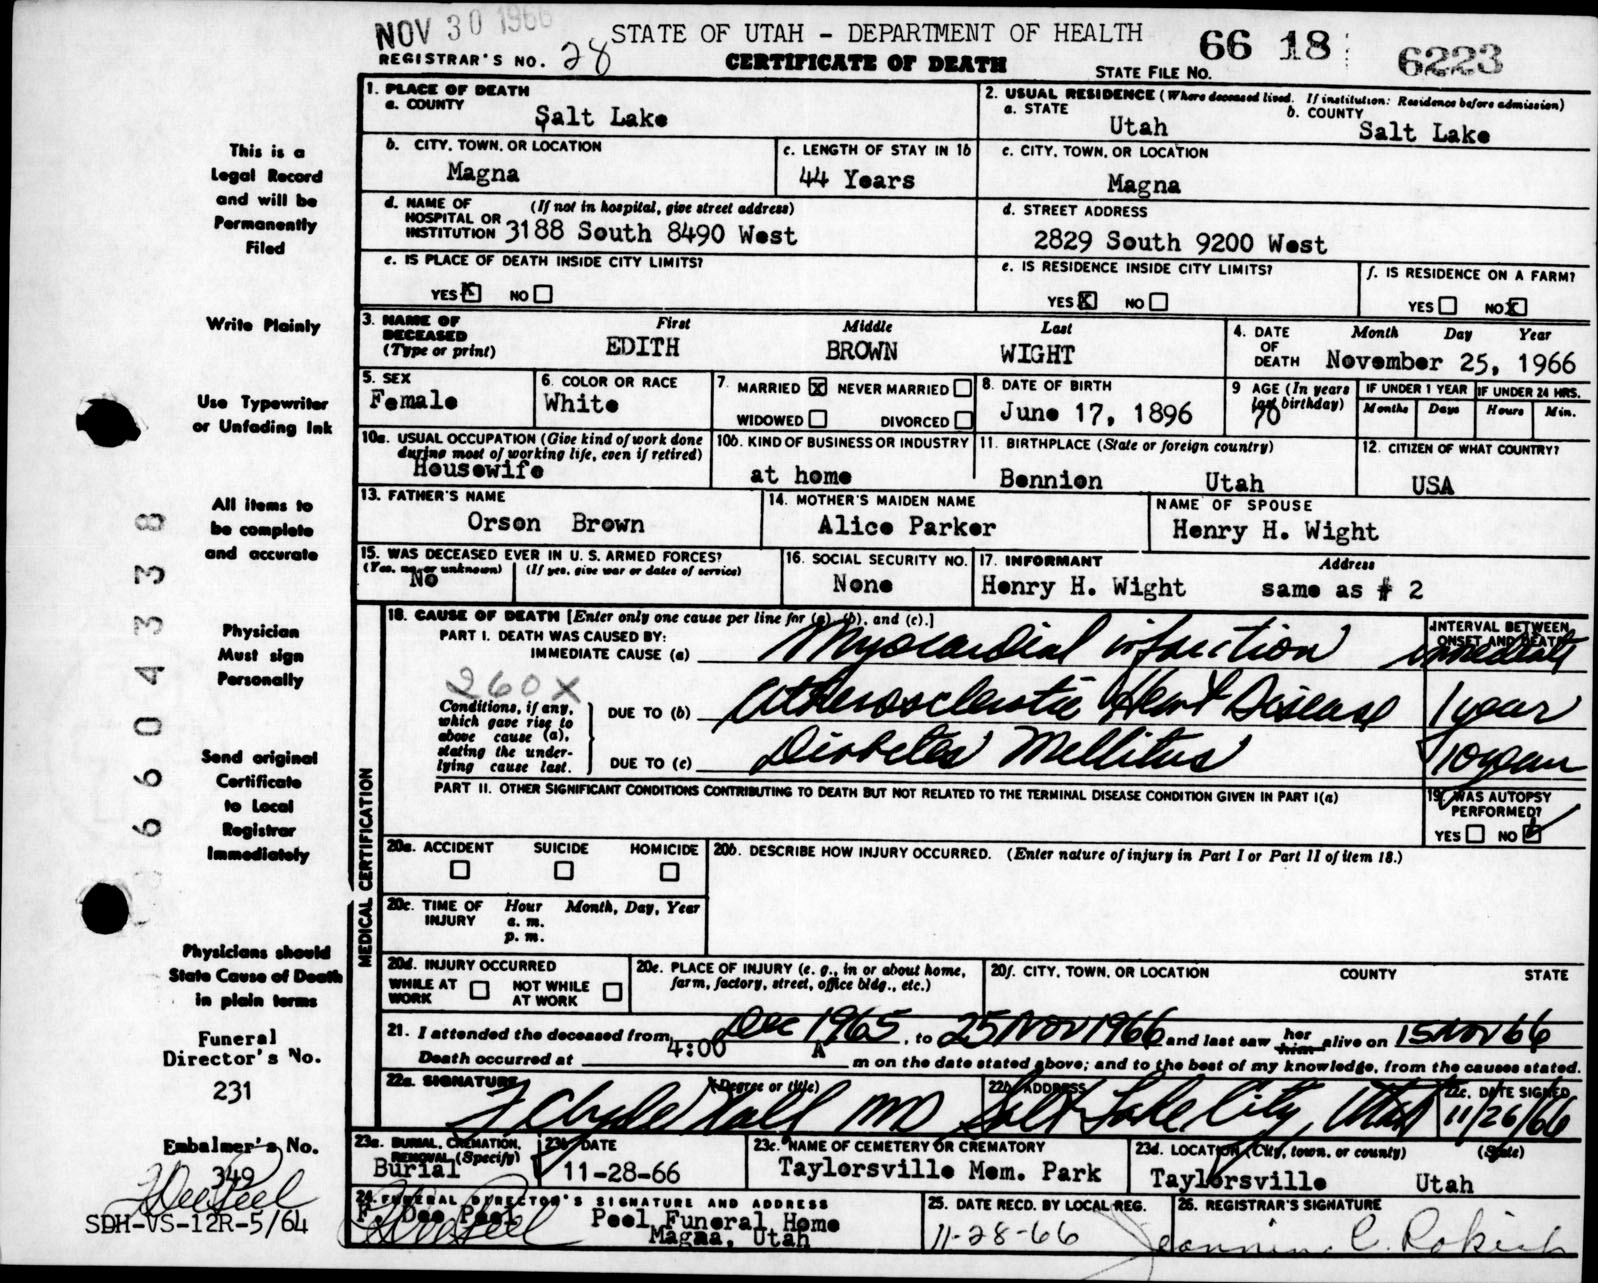 NOV 30 1966
STATE OF UTAH - DEPARTMENT OF HEALTH
66 18 6223
REGISTRAR'S NO. 28
CERTIFICATE OF DEATH
STATE FILE NO.
This is a
Legal Record
and will be
Permanently
Filed
Write Plainly
Use Typewriter
or Unfading Ink
All items to
be complete
and accurate
Physician
Must sign
Personally
Send original
Certificate
to Local
Registrar
Immediately
Physicians should
State Cause of Death
in plain terms
Funeral
Director's No.
231
Embalmer's No.
349
SDH-VS-12R-5/64
66 04338
1. PLACE OF DEATH
a. COUNTY
Salt Lake
2. USUAL RESIDENCE (Where deceased lived. If institution: Residence before admission)
a. STATE
Utah
b. COUNTY
Salt Lake
b. CITY, TOWN, OR LOCATION
Magna
c. LENGTH OF STAY IN 1b
44 Years
c. CITY, TOWN, OR LOCATION
Magna
d. NAME OF HOSPITAL OR INSTITUTION (If not in hospital, give street address)
3188 South 8490 West
d. STREET ADDRESS
2829 South 9200 West
e. IS PLACE OF DEATH INSIDE CITY LIMITS?
YES X NO
e. IS RESIDENCE INSIDE CITY LIMITS?
YES X NO
f. IS RESIDENCE ON A FARM?
YES NO X
3. NAME OF DECEASED (Type or print)
First Middle Last
EDITH BROWN WIGHT
4. DATE OF DEATH Month Day Year
November 25, 1966
5. SEX
Female
6. COLOR OR RACE
White
7. MARRIED X NEVER MARRIED
WIDOWED DIVORCED
8. DATE OF BIRTH
June 17, 1896
9 AGE (In years last birthday)
70
IF UNDER 1 YEAR IF UNDER 24 HRS.
Months Days Hours Min.
10a. USUAL OCCUPATION (Give kind of work done
during most of working life, even if retired)
Housewife
10b. KIND OF BUSINESS OR INDUSTRY
at home
11. BIRTHPLACE (State or foreign country)
Bennion Utah
12. CITIZEN OF WHAT COUNTRY?
USA
13. FATHER'S NAME
Orson Brown
14. MOTHER'S MAIDEN NAME
Alice Parker
NAME OF SPOUSE
Henry H. Wight
15. WAS DECEASED EVER IN U. S. ARMED FORCES?
(Yes, no, or unknown) (If yes, give war or dates of service)
No
16. SOCIAL SECURITY NO.
None
17. INFORMANT Address
Henry H. Wight same as # 2
MEDICAL CERTIFICATION
18. CAUSE OF DEATH [Enter only one cause per line for (a), (b), and (c).]
PART I. DEATH WAS CAUSED BY:
IMMEDIATE CAUSE (a) Myocardial infarction
INTERVAL BETWEEN
ONSET AND DEATH
immediate
260X
Conditions, if any,
which gave rise to
above cause (a),
stating the under-
lying cause last.
DUE TO (b) Atherosclerotic Heart Disease 1 year
DUE TO (c) Diabetes Mellitus 10 year
PART II. OTHER SIGNIFICANT CONDITIONS CONTRIBUTING TO DEATH BUT NOT RELATED TO THE TERMINAL DISEASE CONDITION GIVEN IN PART I(a)
19. WAS AUTOPSY
PERFORMED?
YES NO
20a. ACCIDENT SUICIDE HOMICIDE
20b. DESCRIBE HOW INJURY OCCURRED. (Enter nature of injury in Part I or Part II of item 18.)
20c. TIME OF INJURY Hour Month, Day, Year
a. m.
p. m.
20d. INJURY OCCURRED
WHILE AT WORK NOT WHILE AT WORK
20e. PLACE OF INJURY (e. g., in or about home,
farm, factory, street, office bldg., etc.)
20f. CITY, TOWN, OR LOCATION COUNTY STATE
21. I attended the deceased from Dec 1965, to 25 Nov 1966 and last saw her him alive on 15 Nov 66
Death occurred at 4:00 A m on the date stated above; and to the best of my knowledge, from the causes stated.
22a. SIGNATURE (Degree or title)
MD
22b. ADDRESS
Salt Lake City, Utah
22c. DATE SIGNED
11/26/66
23a. BURIAL, CREMATION,
REMOVAL (Specify)
Burial
23b. DATE
11-28-66
23c. NAME OF CEMETERY OR CREMATORY
Taylorsville Mem. Park
23d. LOCATION (City, town, or county) (State)
Taylorsville Utah
24. FUNERAL DIRECTOR'S SIGNATURE AND ADDRESS
F. Dee Peel Peel Funeral Home
Magna, Utah
25. DATE RECD. BY LOCAL REG.
11-28-66
26. REGISTRAR'S SIGNATURE